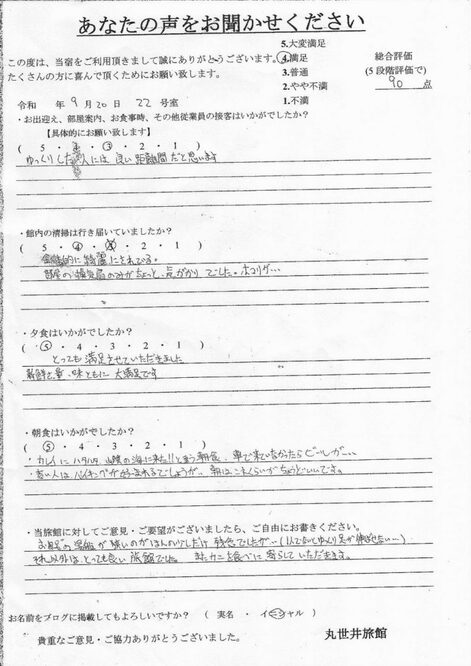 あなたの声をお聞かせください
この度は、当宿をご利用頂きまして誠にありがとうございます。
たくさんの方に喜んで頂くためにお願い致します。
5.大変満足
4.満足
3.普通
2.やや不満
1.不満
総合評価
(5段階評価で)
90 点
令和 年 9月20日 22号室
・お出迎え、部屋案内、お食事時、その他従業員の接客はいかがでしたか?
【具体的にお願い致します】
( 5 ・ 4 ・ 3 ・ 2 ・ 1 )
ゆっくりした人には良い距離間だと思います
・館内の清掃は行き届いていましたか?
( 5 ・ 4 ・ 3 ・ 2 ・ 1 )
全体的に綺麗にされている。
部屋の換気扇のみがちょっと気がかりでした。ホコリが…
・夕食はいかがでしたか?
( 5 ・ 4 ・ 3 ・ 2 ・ 1 )
とっても満足させていただきました
新鮮さ、量、味ともに大満足です
・朝食はいかがでしたか?
( 5 ・ 4 ・ 3 ・ 2 ・ 1 )
・カレイにハタハタ、山陰の海に来た!!と思う朝食、車で来ていなかったらビールが…
・若い人はバイキングが好まれるでしょうが、朝はこれくらいがちょうどいいです。
・当旅館に対してご意見・ご要望がございましたら、ご自由にお書きください。
お風呂の湯船が狭いのがほんの少しだけ残念でしたが…(1人でないとゆっくり足が伸ばせない…)
それ以外はとっても良い旅館でした。またカニを食べに寄らしていただきます。
お名前をブログに掲載してもよろしいですか? ( 実名 ・ イニシャル )
貴重なご意見・ご協力ありがとうございました。
丸世井旅館